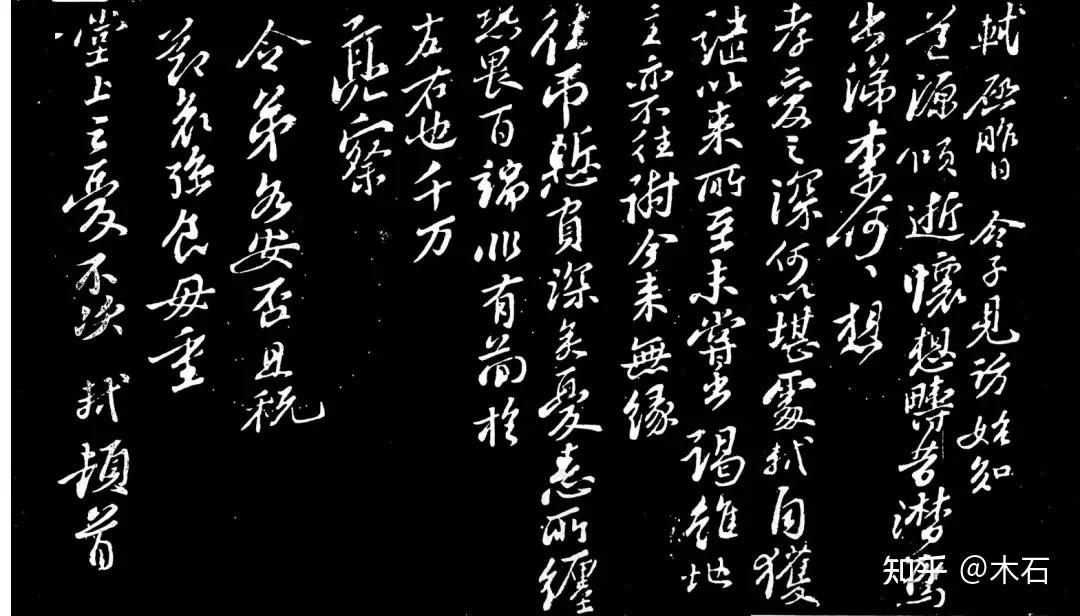 軾啓昨日 令子見訪始知
道源傾逝懷想疇昔潸焉
出涕柰何〻想
孝愛之深何以堪處軾自獲
譴以來所至未嘗出謁雖地
主亦不往謝今來無緣
往弔慙負深矣憂恚所纏
恐畏百端非有簡於
左右也千万
亮察
令弟各安否且税
節哀強食毋重
堂上之憂不次 軾頓首
知乎 @木石